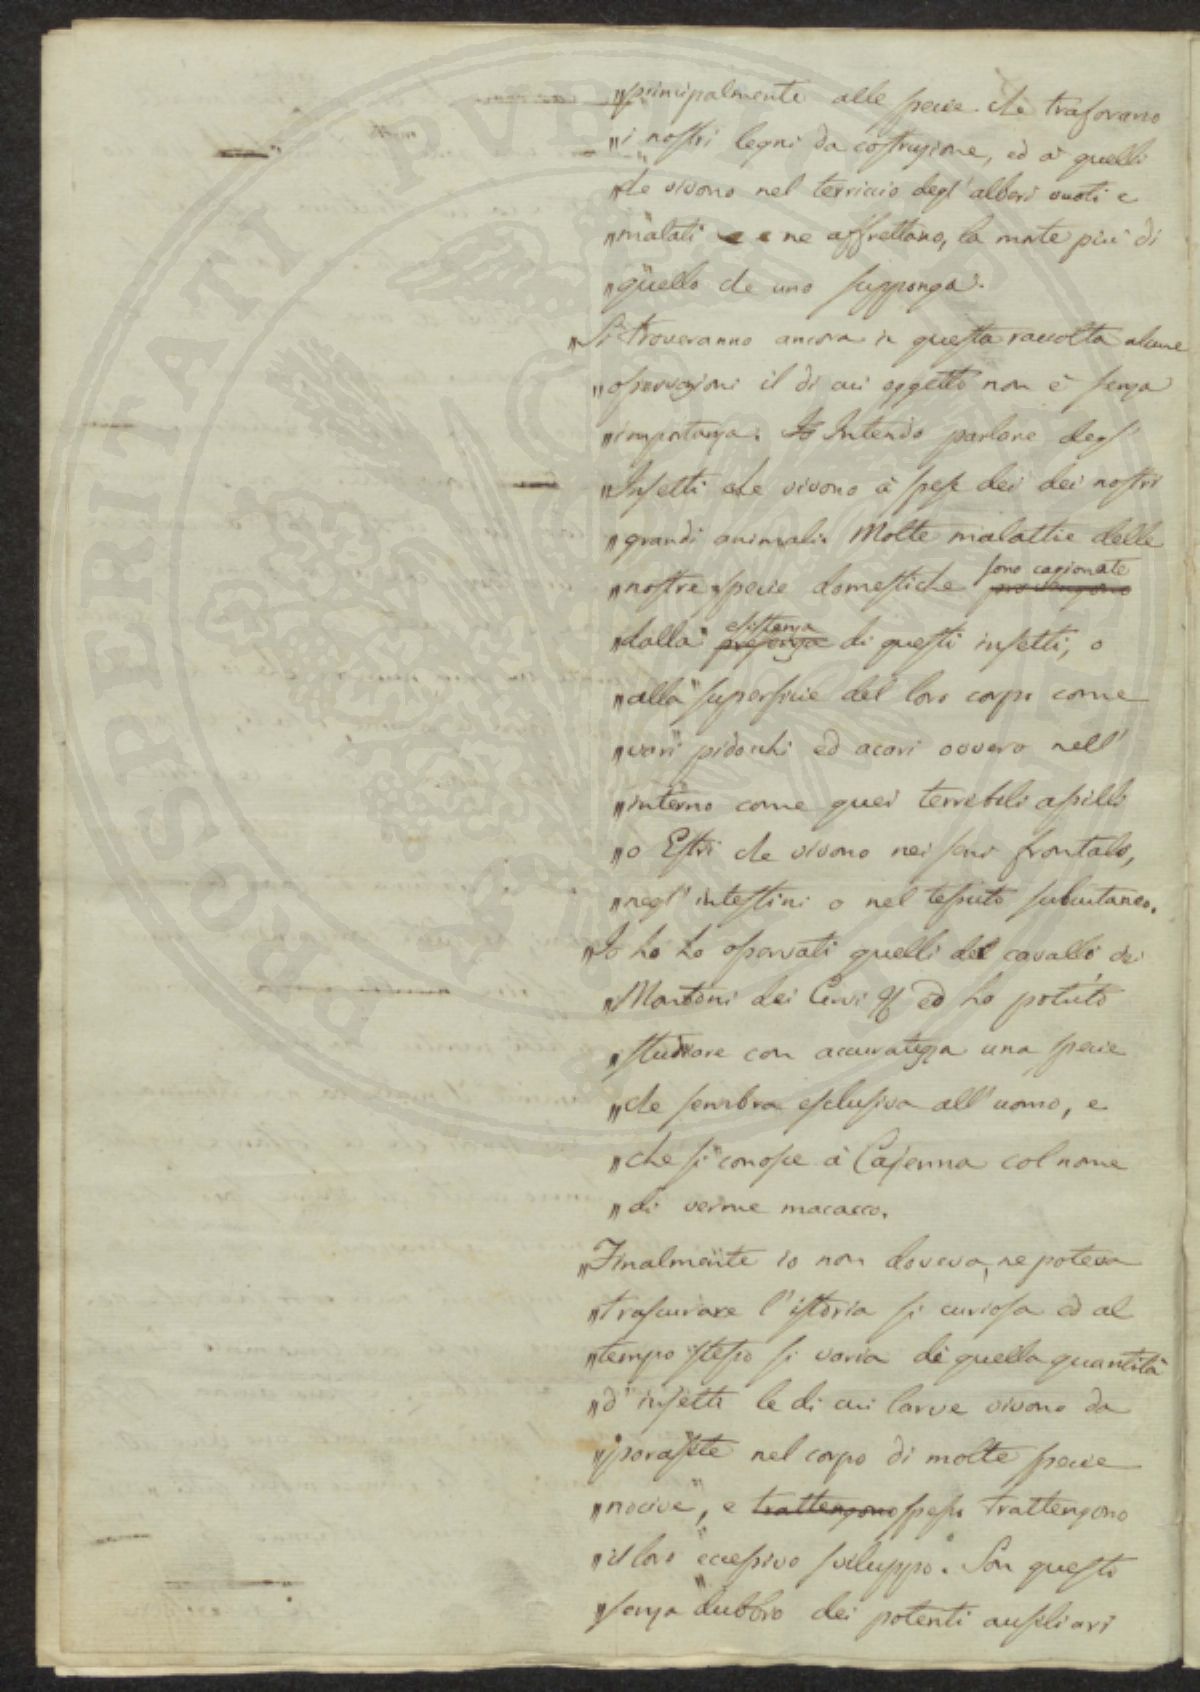 „principalmente alle specie che traforano
„i nostri legni da costruzione, ed à quelli
„che vivono nel terriccio degl' alberi vuoti e
„malati e ne affrettano, la morte più di
„quello che uno supponga.
„Si troveranno ancora in questa raccolta alcune
„osservazioni il di cui oggetto non è senza
„importanza. Io Intendo parlare degl'
„Insetti che vivono à spese dei dei nostri
„grandi animali. Molte malattie delle
„nostre specie domestiche sono cagionate provengono
„dalla esistenza presenza di questi insetti, o
„alla superficie del loro corpo come
„varj pidocchi ed acari ovvero nell'
„interno come quei terribili assilli
„o Estri che vivono nei seni frontali,
„negl' intestini o nel tessuto subcutaneo.
„Io ho ho osservati quelli del cavallo dei
„Montoni dei Cervi & ed ho potuto
„studiare con accuratezza una specie
„che sembra esclusiva all' uomo, e
„che si conosce à Cajenna col nome
„di verme macacco.
„Finalmente io non doveva, ne poteva
„trascurare l' istoria si curiosa ed al
„tempo stesso si varia di quella quantità
„d' insetti le di cui larve vivono da
„parasite nel corpo di molte specie
„nocive, e trattengono spesso trattengono
„il loro eccessivo sviluppo. Son questi
„senza dubbio dei potenti ausiliari
PROSPERITATI PVBLICAE